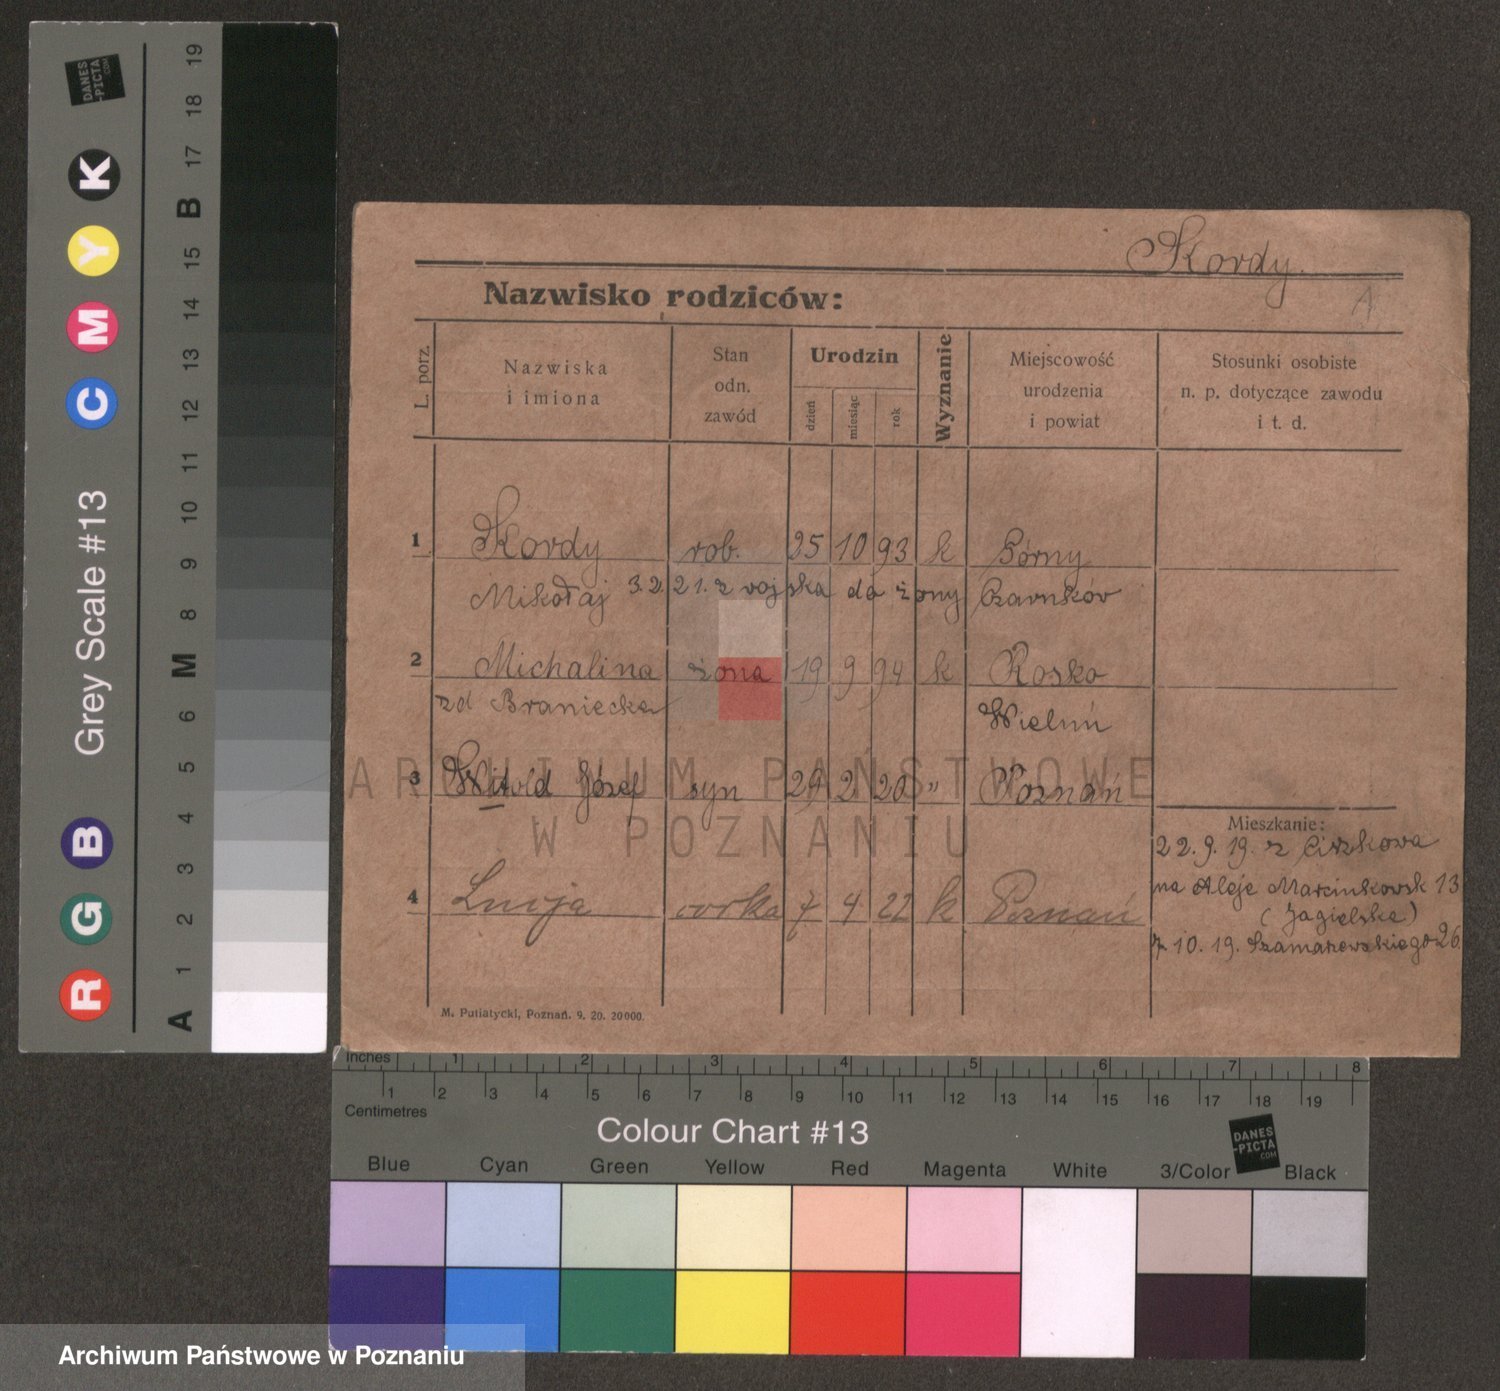 Kordy.
A
Nazwisko rodziców:
L. porz.
Nazwiska
i imiona
Stan
odn.
zawód
Urodzin
dzień
miesiąc
rok
Wyznanie
Miejscowość
urodzenia
i powiat
Stosunki osobiste
n. p. dotyczące zawodu
i t. d.
1 Kordy rob. 25 10 93 k Górny
Mikołaj 3.2.21. z wojska do żony Czarnków
2 Michalina żona 19 9 94 k Rosko
zd Braniecka Wieluń
3 Witold Józef syn 29 2 20 " Poznań
4 Lucja córka 7 4 22 k Poznań
Mieszkanie:
22.9.19. z Ciszkowa
na Aleje Marcinkowsk 13
(Jagielska)
7 10. 19. Szamarzewskiego 26
M. Putiatycki, Poznań. 9. 20. 20000.
ARCHIWUM PAŃSTWOWE
W POZNANIU
Grey Scale #13
R G B C M Y K
A 1 2 3 4 5 6 M 7 8 9 10 11 12 13 14 15 B 16 17 18 19
DANES
-PICTA
.COM
Inches 1 2 3 4 5 6 7 8
Centimetres 1 2 3 4 5 6 7 8 9 10 11 12 13 14 15 16 17 18 19
Colour Chart #13
DANES
-PICTA
.COM
Blue Cyan Green Yellow Red Magenta White 3/Color Black
Archiwum Państwowe w Poznaniu